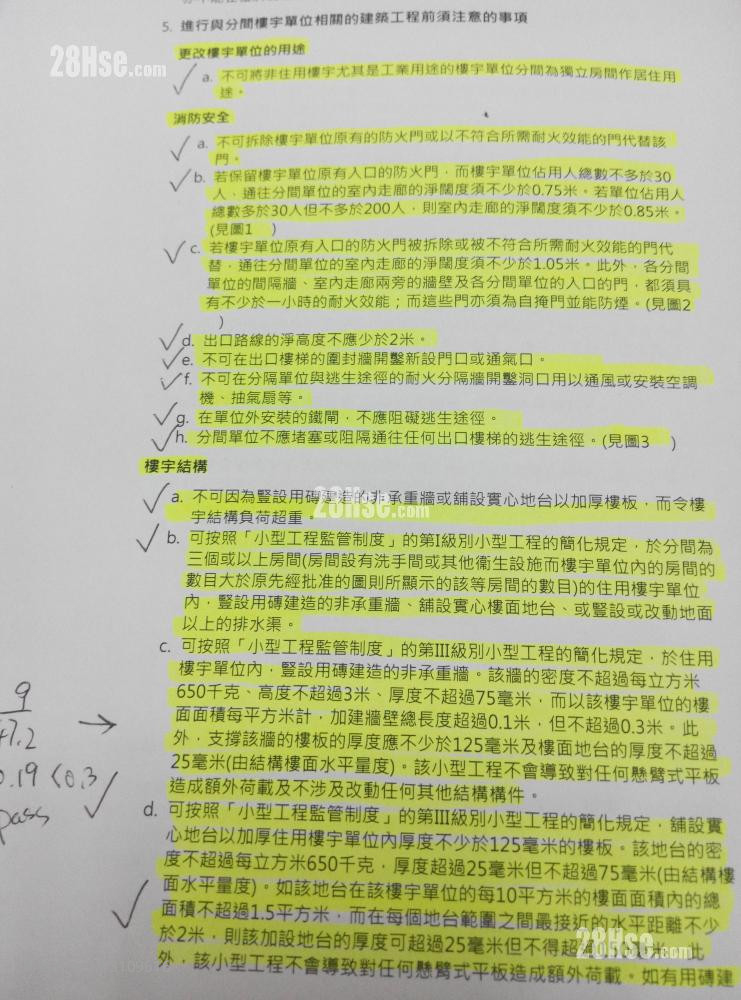 5. 進行與分間樓宇單位相關的建築工程前須注意的事項
更改樓宇單位的用途
a. 不可將非住用樓宇尤其是工業用途的樓宇單位分間為獨立房間作居住用
途。
消防安全
a. 不可拆除樓宇單位原有的防火門或以不符合所需耐火效能的門代替該
門。
b. 若保留樓宇單位原有入口的防火門，而樓宇單位佔用人總數不多於30
人，通往分間單位的室內走廊的淨闊度須不少於0.75米。若單位佔用人
總數多於30人但不多於200人，則室內走廊的淨闊度須不少於0.85米。
(見圖1 )
c. 若樓宇單位原有入口的防火門被拆除或被不符合所需耐火效能的門代
替，通往分間單位的室內走廊的淨闊度須不少於1.05米。此外，各分間
單位的間隔牆、室內走廊兩旁的牆壁及各分間單位的入口的門，都須具
有不少於一小時的耐火效能；而這些門亦須為自掩門並能防煙。(見圖2
)
d. 出口路線的淨高度不應少於2米。
e. 不可在出口樓梯的圍封牆開鑿新設門口或通氣口。
f. 不可在分隔單位與逃生途徑的耐火分隔牆開鑿洞口用以通風或安裝空調
機、抽氣扇等。
g. 在單位外安裝的鐵閘，不應阻礙逃生途徑。
h. 分間單位不應堵塞或阻隔通往任何出口樓梯的逃生途徑。(見圖3 )
樓宇結構
a. 不可因為豎設用磚建造的非承重牆或舖設實心地台以加厚樓板，而令樓
宇結構負荷超重。
b. 可按照「小型工程監管制度」的第I級別小型工程的簡化規定，於分間為
三個或以上房間(房間設有洗手間或其他衞生設施而樓宇單位內的房間的
數目大於原先經批准的圖則所顯示的該等房間的數目)的住用樓宇單位
內，豎設用磚建造的非承重牆、舖設實心樓面地台、或豎設或改動地面
以上的排水渠。
c. 可按照「小型工程監管制度」的第III級別小型工程的簡化規定，於住用
樓宇單位內，豎設用磚建造的非承重牆。該牆的密度不超過每立方米
650千克、高度不超過3米、厚度不超過75毫米，而以該樓宇單位的樓
面面積每平方米計，加建牆壁總長度超過0.1米，但不超過0.3米。此
外，支撐該牆的樓板的厚度應不少於125毫米及樓面地台的厚度不超過
25毫米(由結構樓面水平量度)。該小型工程不會導致對任何懸臂式平板
造成額外荷載及不涉及改動任何其他結構構件。
9
47.2
0.19 < 0.3
pass
d. 可按照「小型工程監管制度」的第III級別小型工程的簡化規定，舖設實
心地台以加厚住用樓宇單位內厚度不少於125毫米的樓板。該地台的密
度不超過每立方米650千克，厚度超過25毫米但不超過75毫米(由結構樓
面水平量度)。如該地台在該樓宇單位的每10平方米的樓面面積內的總
面積不超過1.5平方米，而在每個地台範圍之間最接近的水平距離不少
於2米，則該加設地台的厚度可超過25毫米但不得超 米。此
外，該小型工程不會導致對任何懸臂式平板造成額外荷載。如有用磚建
28Hse.com
28Hse.com
28Hse.com